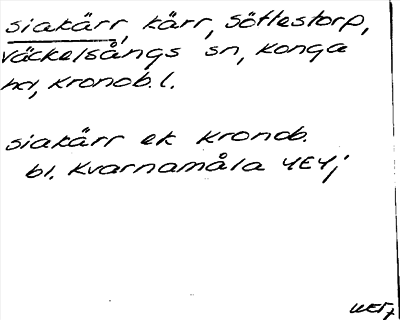 siakärr, kärr, Söttestorp,
Väckelsångs sn, Konga
hd, Kronob. l.
siakärr ek Kronob.
bl. Kvarnamåla 4E4j